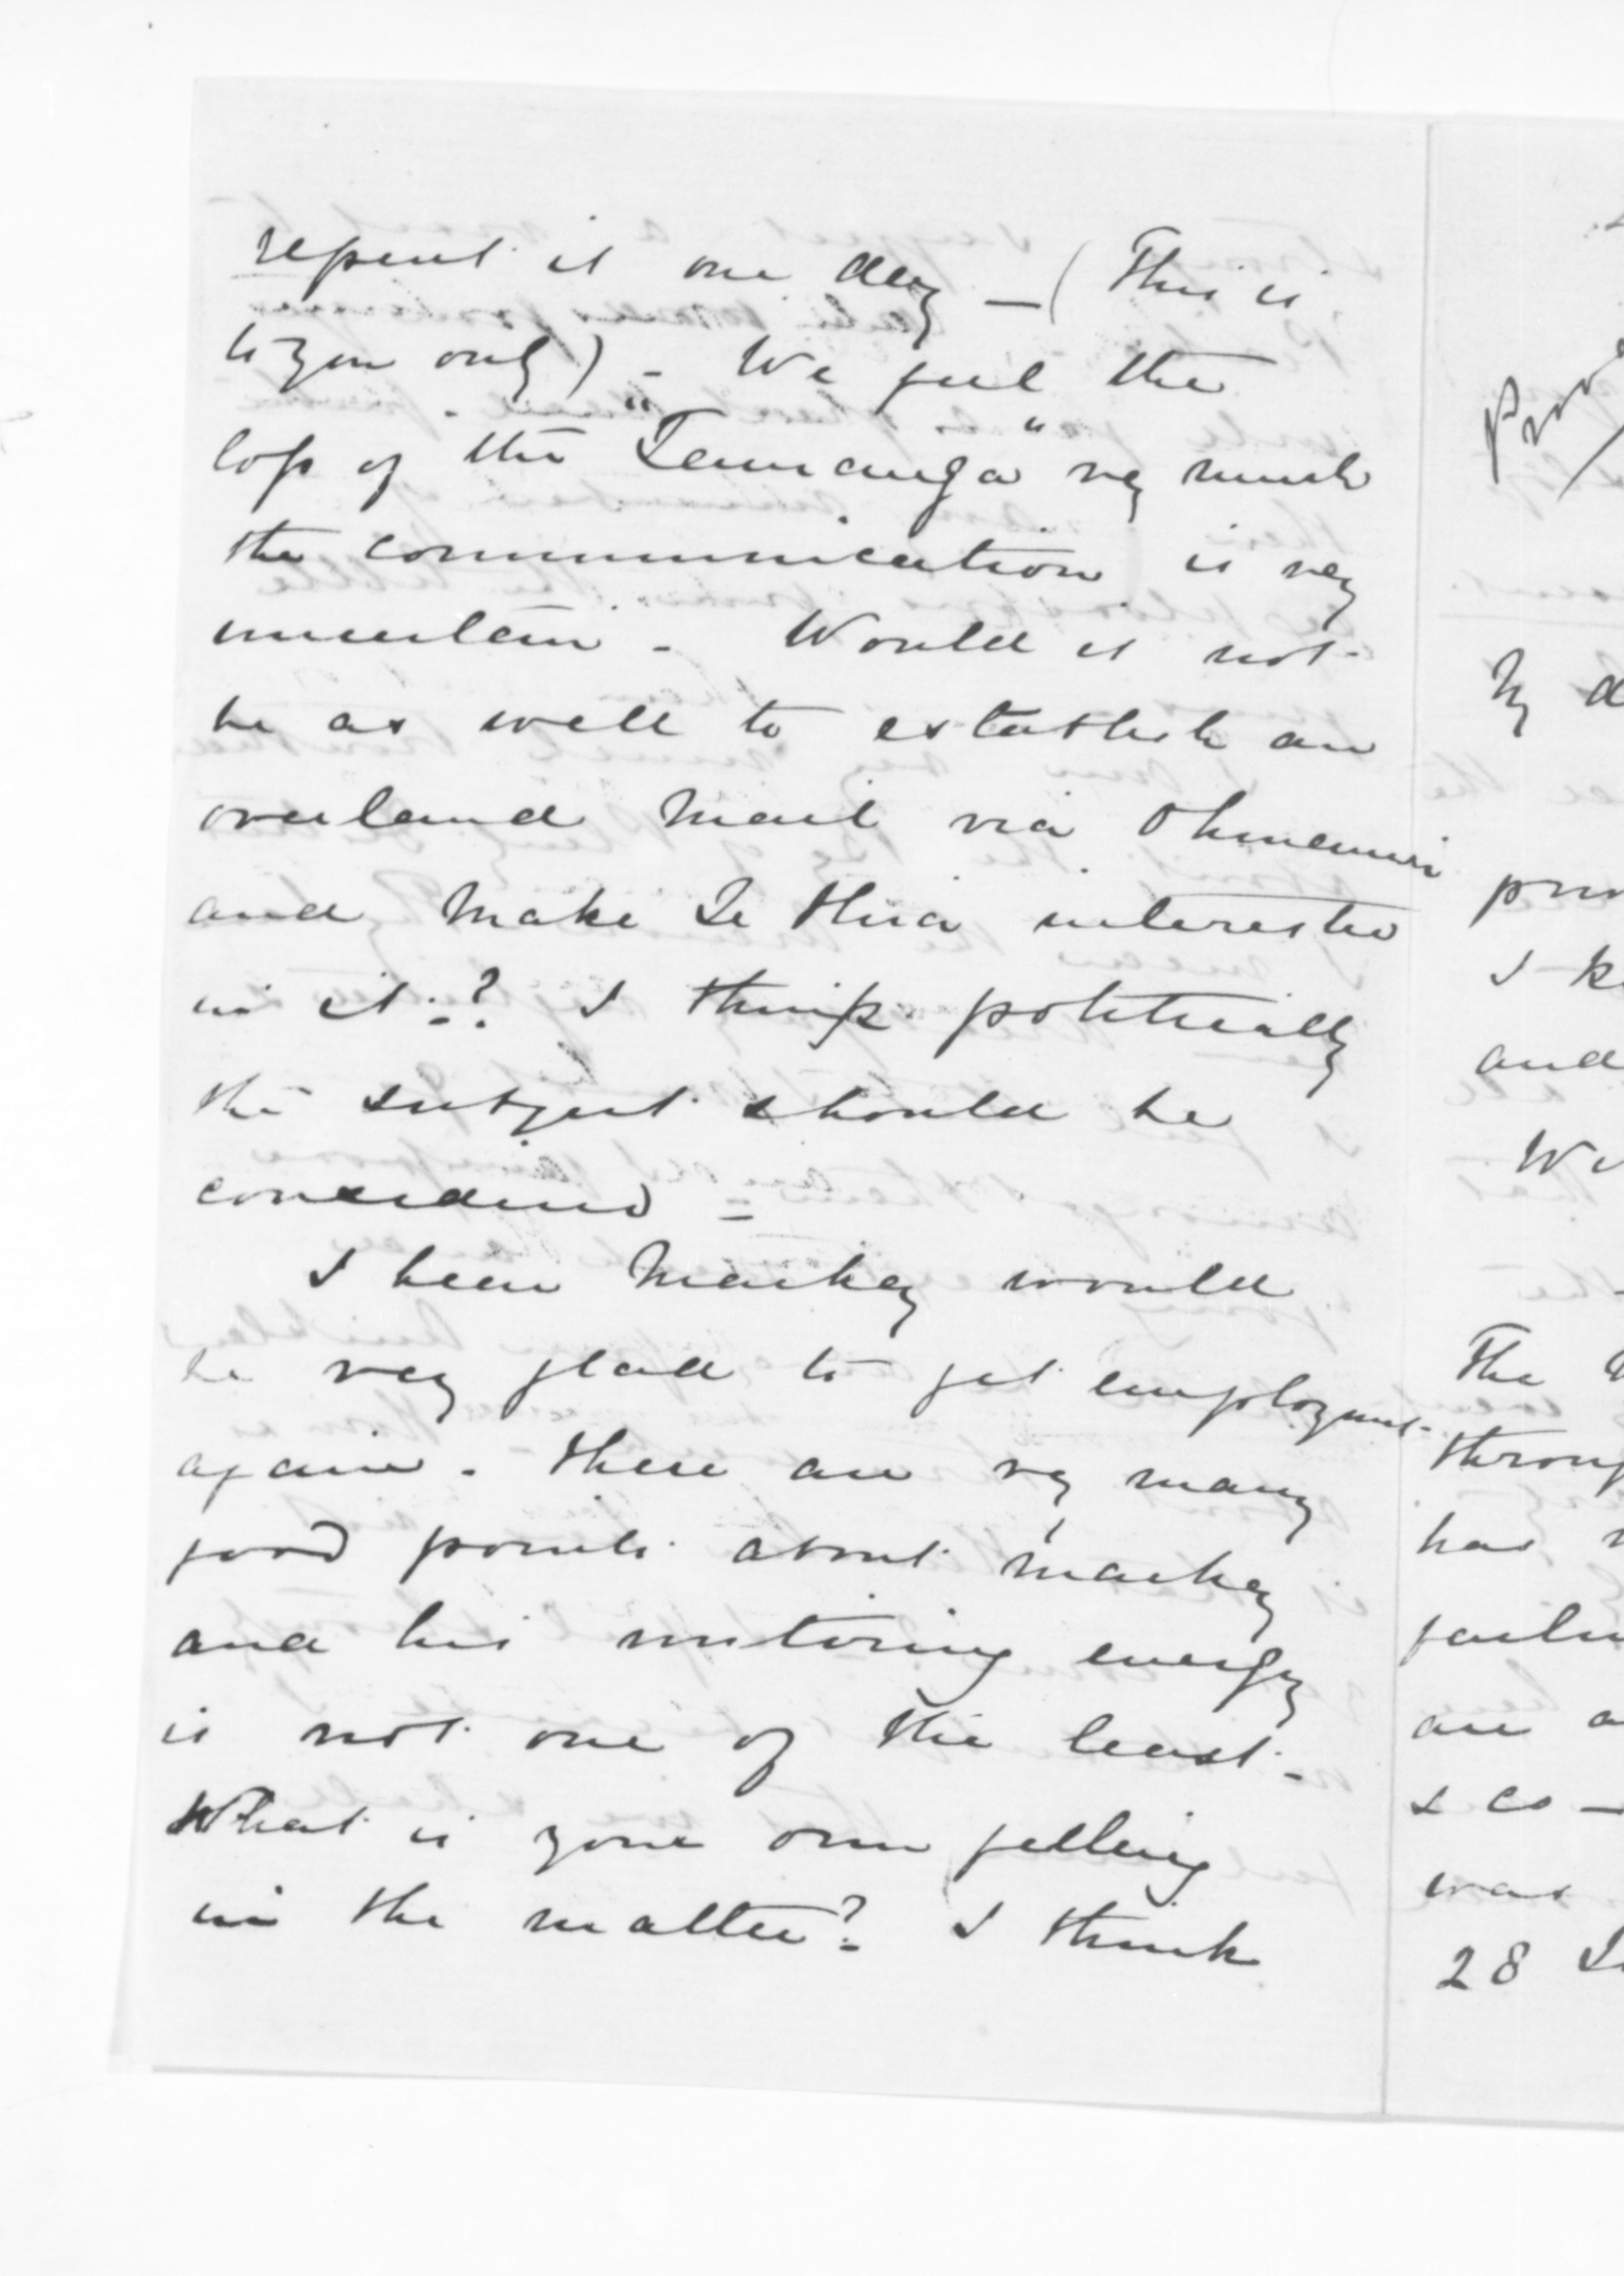 repent it one day — (This is
to you only) - We feel the
loss of the "Tauranga" very much
the communication is very
uncertain - Would it not
be as well to establish an
overland mail via Ohinemuri
and make Te Hira interested
in it? I think politically
the subject should be
considered -
I hear Mackay would
be very glad to get employment
again. There are very many
good points about Mackay
and his untiring energy
is not one of the least -
What is your own felling
in the matter? I think
My d
I k
and
The
has
are a
& co —
was
28